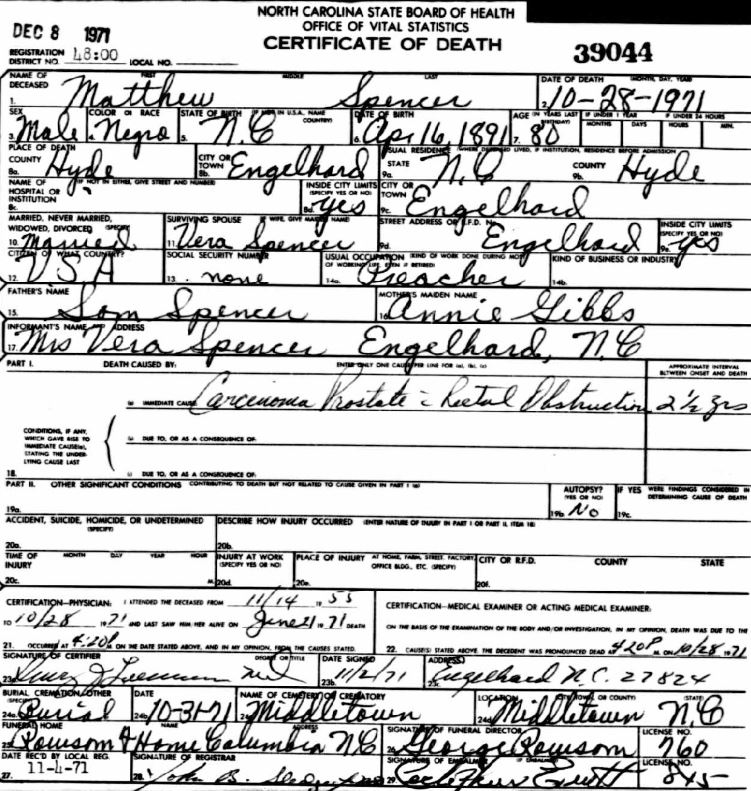 NORTH CAROLINA STATE BOARD OF HEALTH
OFFICE OF VITAL STATISTICS
CERTIFICATE OF DEATH
DEC 8 1971
39044
REGISTRATION DISTRICT NO. 48:00 LOCAL NO.
NAME OF DECEASED FIRST MIDDLE LAST DATE OF DEATH (MONTH, DAY, YEAR)
1. Matthew Spencer 2. 10-28-1971
SEX COLOR OR RACE STATE OF BIRTH (IF NOT IN U.S.A., NAME COUNTRY) DATE OF BIRTH AGE (IN YEARS LAST BIRTHDAY) IF UNDER 1 YEAR MONTHS DAYS IF UNDER 24 HOURS HOURS MIN.
3. Male 4. Negro 5. N.C 6. Apr 16, 1891 7. 80
PLACE OF DEATH USUAL RESIDENCE (WHERE DECEASED LIVED, IF INSTITUTION, RESIDENCE BEFORE ADMISSION)
COUNTY CITY OR TOWN STATE COUNTY
8a. Hyde 8b. Engelhard 9a. N.C 9b. Hyde
NAME OF HOSPITAL OR INSTITUTION (IF NOT IN EITHER, GIVE STREET AND NUMBER) INSIDE CITY LIMITS (SPECIFY YES OR NO) CITY OR TOWN
8c. 8d. yes 9c. Engelhard
MARRIED, NEVER MARRIED, WIDOWED, DIVORCED (SPECIFY) SURVIVING SPOUSE (IF WIFE, GIVE MAIDEN NAME) STREET ADDRESS OR R.F.D. NO. INSIDE CITY LIMITS (SPECIFY YES OR NO)
10. Married 11. Vera Spencer 9d. Engelhard 9e. yes
CITIZEN OF WHAT COUNTRY? SOCIAL SECURITY NUMBER USUAL OCCUPATION (KIND OF WORK DONE DURING MOST OF WORKING LIFE, EVEN IF RETIRED) KIND OF BUSINESS OR INDUSTRY
12. USA 13. none 14a. Preacher 14b.
FATHER'S NAME MOTHER'S MAIDEN NAME
15. Sam Spencer 16. Annie Gibbs
INFORMANT'S NAME AND ADDRESS
17. Mrs Vera Spencer Engelhard, N.C
PART I. DEATH CAUSED BY: ENTER ONLY ONE CAUSE PER LINE FOR (a), (b), (c) APPROXIMATE INTERVAL BETWEEN ONSET AND DEATH
(a) IMMEDIATE CAUSE Carcinoma Prostate c Rectal Obstruction 2 1/2 yrs
CONDITIONS, IF ANY, WHICH GAVE RISE TO IMMEDIATE CAUSE(a), STATING THE UNDERLYING CAUSE LAST
DUE TO, OR AS A CONSEQUENCE OF:
18. DUE TO, OR AS A CONSEQUENCE OF:
PART II. OTHER SIGNIFICANT CONDITIONS CONTRIBUTING TO DEATH BUT NOT RELATED TO CAUSE GIVEN IN PART I (a) AUTOPSY? (YES OR NO) IF YES WERE FINDINGS CONSIDERED IN DETERMINING CAUSE OF DEATH
19a. 19b. No 19c.
ACCIDENT, SUICIDE, HOMICIDE, OR UNDETERMINED (SPECIFY) DESCRIBE HOW INJURY OCCURRED (ENTER NATURE OF INJURY IN PART I OR PART II, ITEM 18)
20a. 20b.
TIME OF INJURY MONTH DAY YEAR HOUR INJURY AT WORK (SPECIFY YES OR NO) PLACE OF INJURY AT HOME, FARM, STREET, FACTORY, OFFICE BLDG., ETC. (SPECIFY) CITY OR R.F.D. COUNTY STATE
20c. M. 20d. 20e. 20f.
CERTIFICATION—PHYSICIAN: I ATTENDED THE DECEASED FROM 11/14 1955
TO 10/28 1971 AND LAST SAW HIM HER ALIVE ON June 21 1971 DEATH
21. OCCURRED AT 4:20P M. ON THE DATE STATED ABOVE, AND IN MY OPINION, FROM THE CAUSES STATED.
CERTIFICATION—MEDICAL EXAMINER OR ACTING MEDICAL EXAMINER:
ON THE BASIS OF THE EXAMINATION OF THE BODY AND/OR INVESTIGATION, IN MY OPINION, DEATH WAS DUE TO THE
22. CAUSE(S) STATED ABOVE. THE DECEDENT WAS PRONOUNCED DEAD 4:20P M. ON 10/28 1971
SIGNATURE OF CERTIFIER DEGREE OR TITLE DATE SIGNED ADDRESS
23a. MD 23b. 11/2/71 23c. Engelhard N.C. 27824
BURIAL CREMATION/OTHER (SPECIFY) DATE NAME OF CEMETERY OR CREMATORY LOCATION (CITY, TOWN, OR COUNTY) (STATE)
24a. Burial 24b. 10-31-71 24c. Middletown 24d. Middletown N.C
FUNERAL HOME NAME ADDRESS SIGNATURE OF FUNERAL DIRECTOR LICENSE NO.
25. Rowsom F Home Columbia N.C 26. George Rowsom 760
DATE REC'D BY LOCAL REG. SIGNATURE OF REGISTRAR SIGNATURE OF EMBALMER LICENSE NO.
27. 11-4-71 28. John B. 29. 845